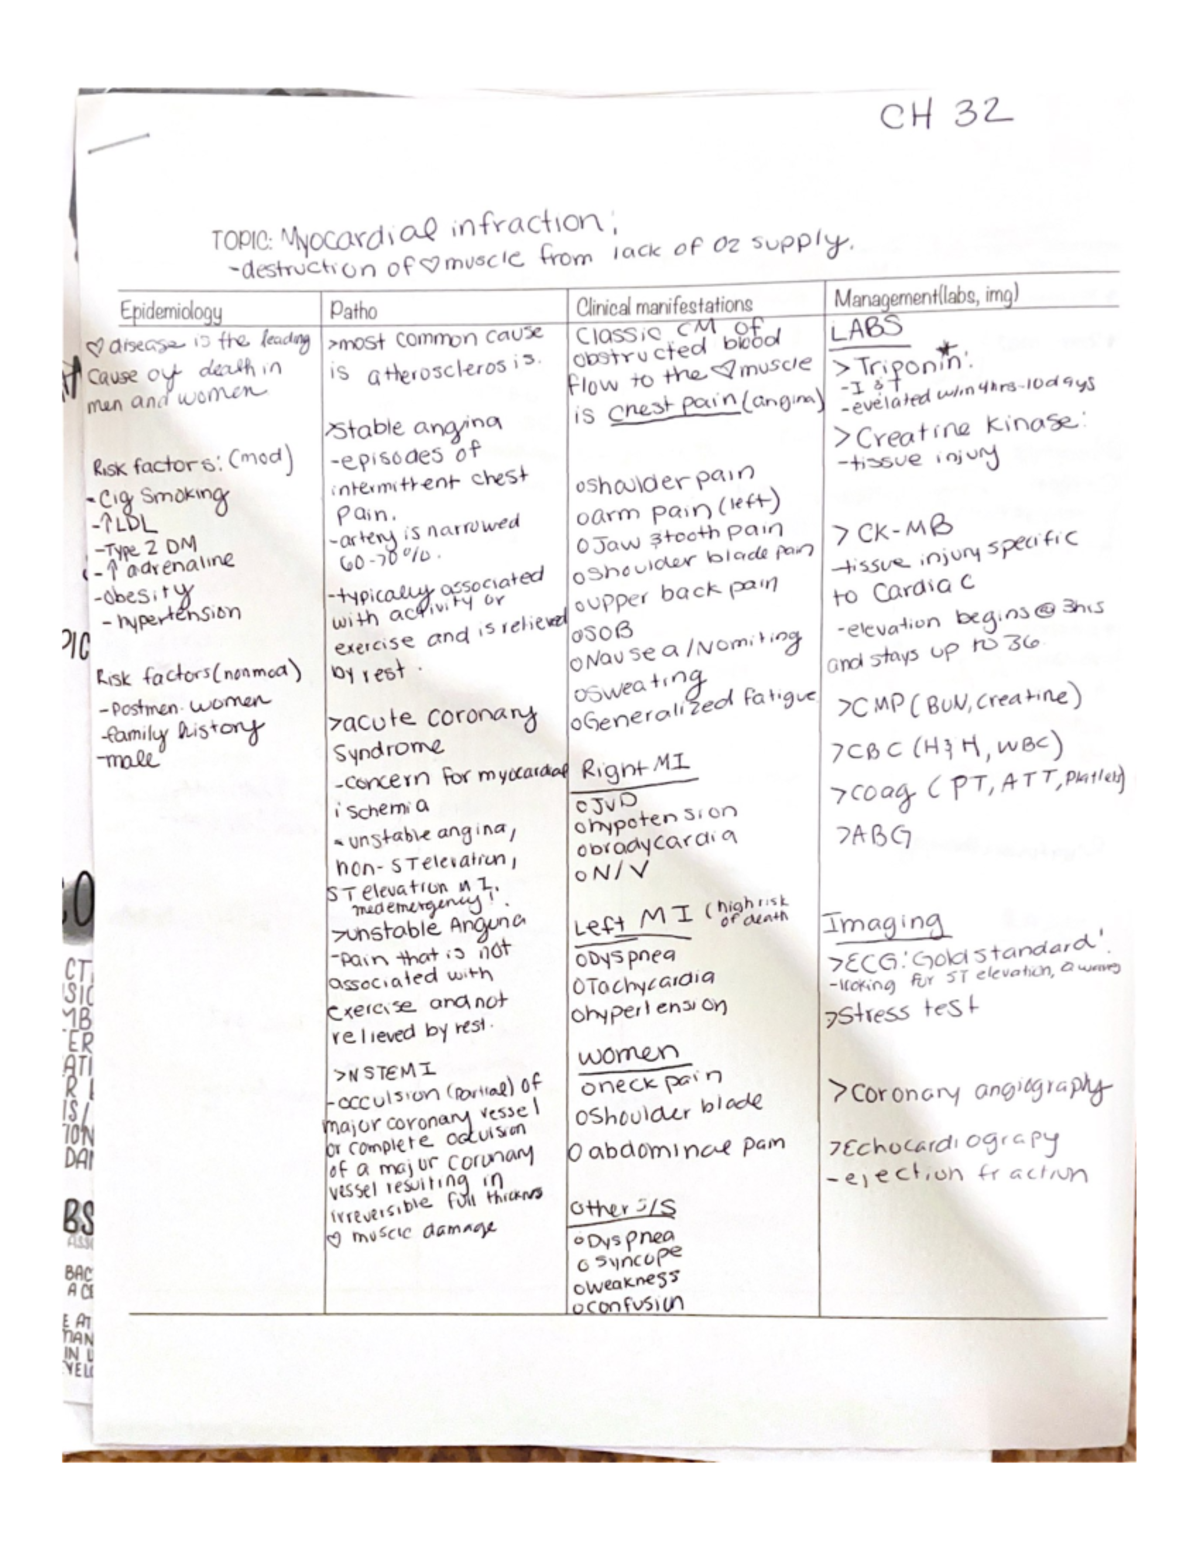 CH 32
TOPIC: Myocardial infraction;
-destruction of ♡ muscle from lack of O2 supply.
Epidemiology
♡ disease is the leading
cause oyf death in
men and women
Risk factors: (mod)
-Cig Smoking
-↑LDL
-Type 2 DM
-↑ adrenaline
-obesity
- hypertension
Risk factors (nonmod)
-Postmen. women
-family history
-male
Patho
>most common cause
is atherosclerosis.
>Stable angina
-episodes of
intermittent chest
pain.
-artery is narrowed
60-70%.
-typically associated
with activity or
exercise and is relieved
by rest.
>acute coronary
Syndrome
-concern for myocardial
ischemia
-unstable angina,
non-ST elevation,
ST elevation MI.
med emergency!
>unstable Angina
-pain that is not
associated with
exercise and not
relieved by rest.
>NSTEMI
-occulsion (partial) of
major coronary vessel
or complete occulsion
of a major coronary
vessel resulting in
irreversible full thicknes
♡ muscle damage
Clinical manifestations
Classic CM of
obstructed blood
flow to the ♡ muscle
is chest pain (angina)
oshoulder pain
oarm pain (left)
oJaw & tooth pain
oshoulder blade pain
oupper back pain
oSOB
oNausea/Vomiting
oSweating
oGeneralized fatigue
Right MI
oJVD
ohypotension
obradycardia
oN/V
Left MI (high risk
of death
oDyspnea
oTachycardia
ohypertension
women
oneck pain
oShoulder blade
oabdominal pain
Other S/S
oDyspnea
osyncope
oweakness
oconfusion
Management(labs, img)
LABS
>Triponin★:
-I & T
-evelated w/in 4hrs-10days
>Creatine kinase:
-tissue injury
> CK-MB
-tissue injury specific
to Cardiac
-elevation begins @ 3hrs
and stays up to 36.
>CMP (BUN, creatine)
>CBC (H&H, WBC)
>coag (PT, ATT, Platlets)
>ABG
Imaging
>ECG: Gold standard!
-looking for ST elevation, Q waves
>Stress test
>coronary angiography
>Echocardiograpy
-ejection fraction
PIC
CT
SIC
MB
ER
ATI
IS/
ION
DAN
BS
BAC
A CE
E AT
MAN
IN L
VELO